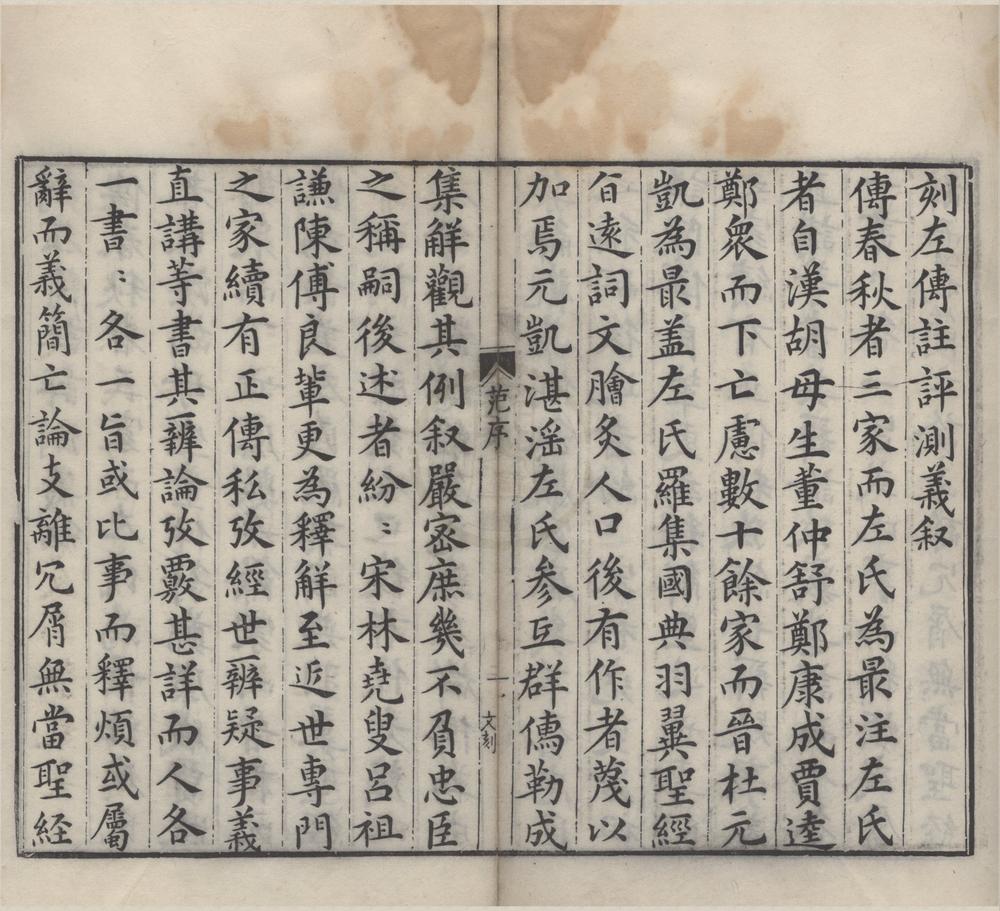 刻左傳註評測義叙
傳春秋者三家而左氏為最注左氏
者自漢胡毋生董仲舒鄭康成賈逵
鄭衆而下亡慮數十餘家而晉杜元
凱為最盖左氏羅集國典羽翼聖經
旨遠詞文膾炙人口後有作者蔑以
加焉元凱湛滛左氏參互群儁勒成
范序
一
文刻
集觧觀其例叙嚴宻庶幾不負忠臣
之稱嗣後述者紛〻宋林堯叟呂祖
謙陳傅良輩更為釋觧至近世專門
之家續有正傳私攷經世辨疑事義
直講等書其辨論攷覈甚詳而人各
一書〻各一旨或比事而釋煩或屬
辭而義簡亡論支離冗屑無當聖經